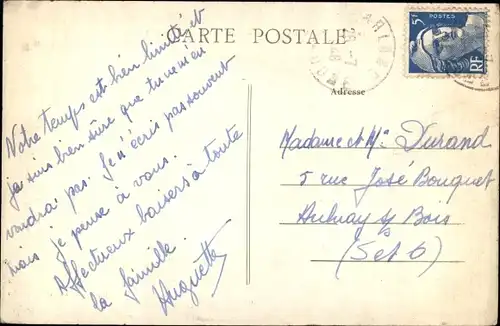 CARTE POSTALE
Adresse
5F
POSTES
RF
Notre temps est bien limité et
je suis bien sûre que tu ne m'en
voudrai pas. Je n'écris pas souvent
mais je pense à vous.
Affectueux baisers à toute
la famille.
Huguette
Madame et Mr Durand
5 rue José Bouquet
Aulnay s/s Bois
(Set O)